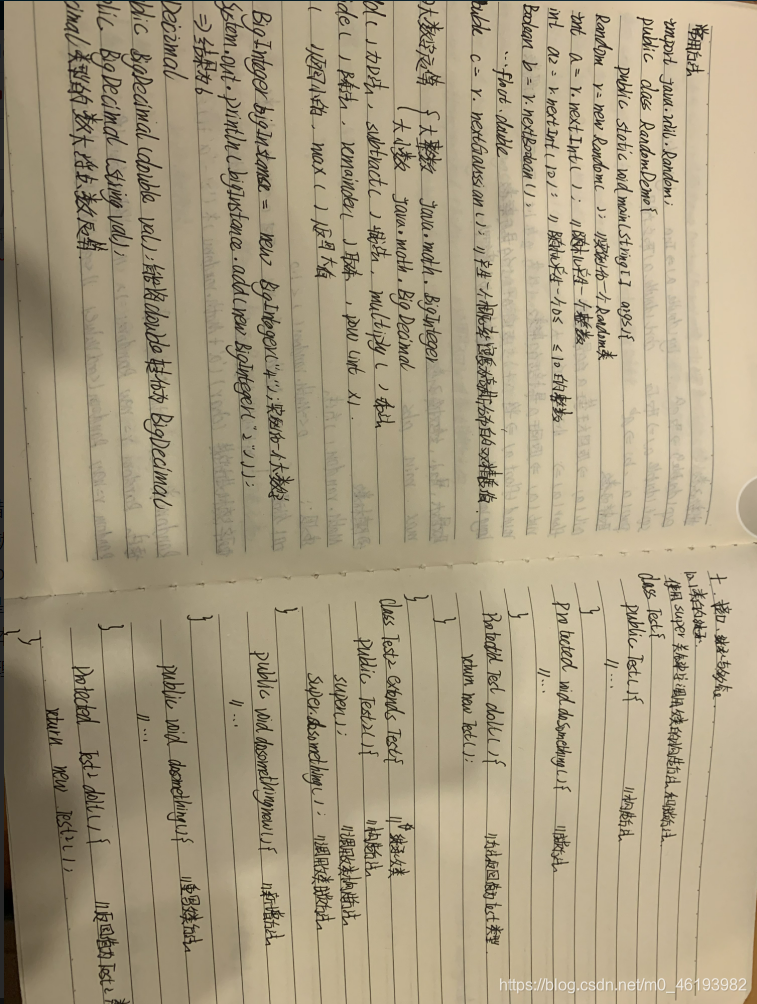 常用方法
import java.util.Random;
public class RandomDemo{
public static void main(String[] args){
Random r = new Random(); //实例化一个Random类
int a = r.nextInt(); //随机产生一个整数
int a2 = r.nextInt(10); //随机产生一个0≤ ≤10的整数
Boolean b = r.nextBoolean();
...float.double
double c = r.nextGaussian(); //产生一个概率密度为高斯分布的双精度值
大数字运算 { 大整数 java.math.BigInteger
大小数 java.math.BigDecimal
add( )加法, subtract( )减法, multiply( )乘法
ide( )除法, remainder( )取余, pow(int x)
( )返回小值, max( )返回大值
BigInteger bigInstance = new BigInteger("4");实例化一个大数字
System.out.println(bigInstance.add(new BigInteger("2")));
=>结果为6
Decimal
blic BigDecimal(double val);能将double转换为BigDecimal
blic BigDecimal(String val);
cimal类型的数大浮点数运算
十、接口、继承与多态
10.1类的继承
使用super关键字调用父类的构造方法和成员方法
class Test{
public Test(){ //构造方法
//...
}
Protected void dosomething(){ //成员方法
//...
}
Protected Test dolt(){ //方法返回值为Test类型
return new Test();
}
}
class Test2 extends Test{ //继承父类
public Test2(){ //构造方法
super(); //调用父类构造方法
super.dosomething(); //调用父类成员方法
}
public void dosomethingnew(){ //新增方法
//...
}
public void dosomething(){ //重写父类方法
//...
}
Protected Test2 dolt(){ //返回值为Test2类
return new Test2();
}
}
https://blog.csdn.net/m0_46193982